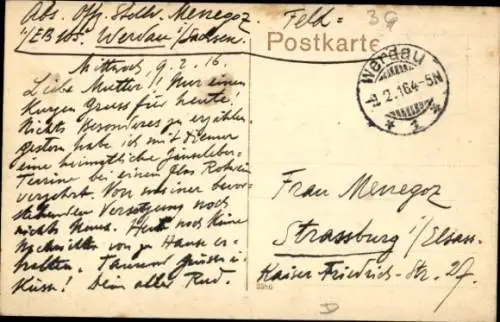 Abs. Off. Stellv. Menegoz
Feld=
39
I/EB 105. Werdau i/Sachsen.
Postkarte
Werdau
9.2.16.4-5N
* 1 *
Mittwoch, 9.2.16.
Liebe Mutter! Nur einen
kurzen Gruss für heute!
Nichts Besonderes zu erzählen,
gestern habe ich mit Diemer
eine heimatliche Gänseleber-
Terrine bei einem Glas Rotwein
verzehrt. Von meiner bevor-
stehenden Versetzung noch
nichts Neues. Heut noch keine
Nachrichten von zu Hause er-
halten. Tausend Grüsse u.
Küsse! Dein alter Rud.
Frau Menegoz
Strassburg i/Elsass.
Kaiser-Friedrich-Str. 27.